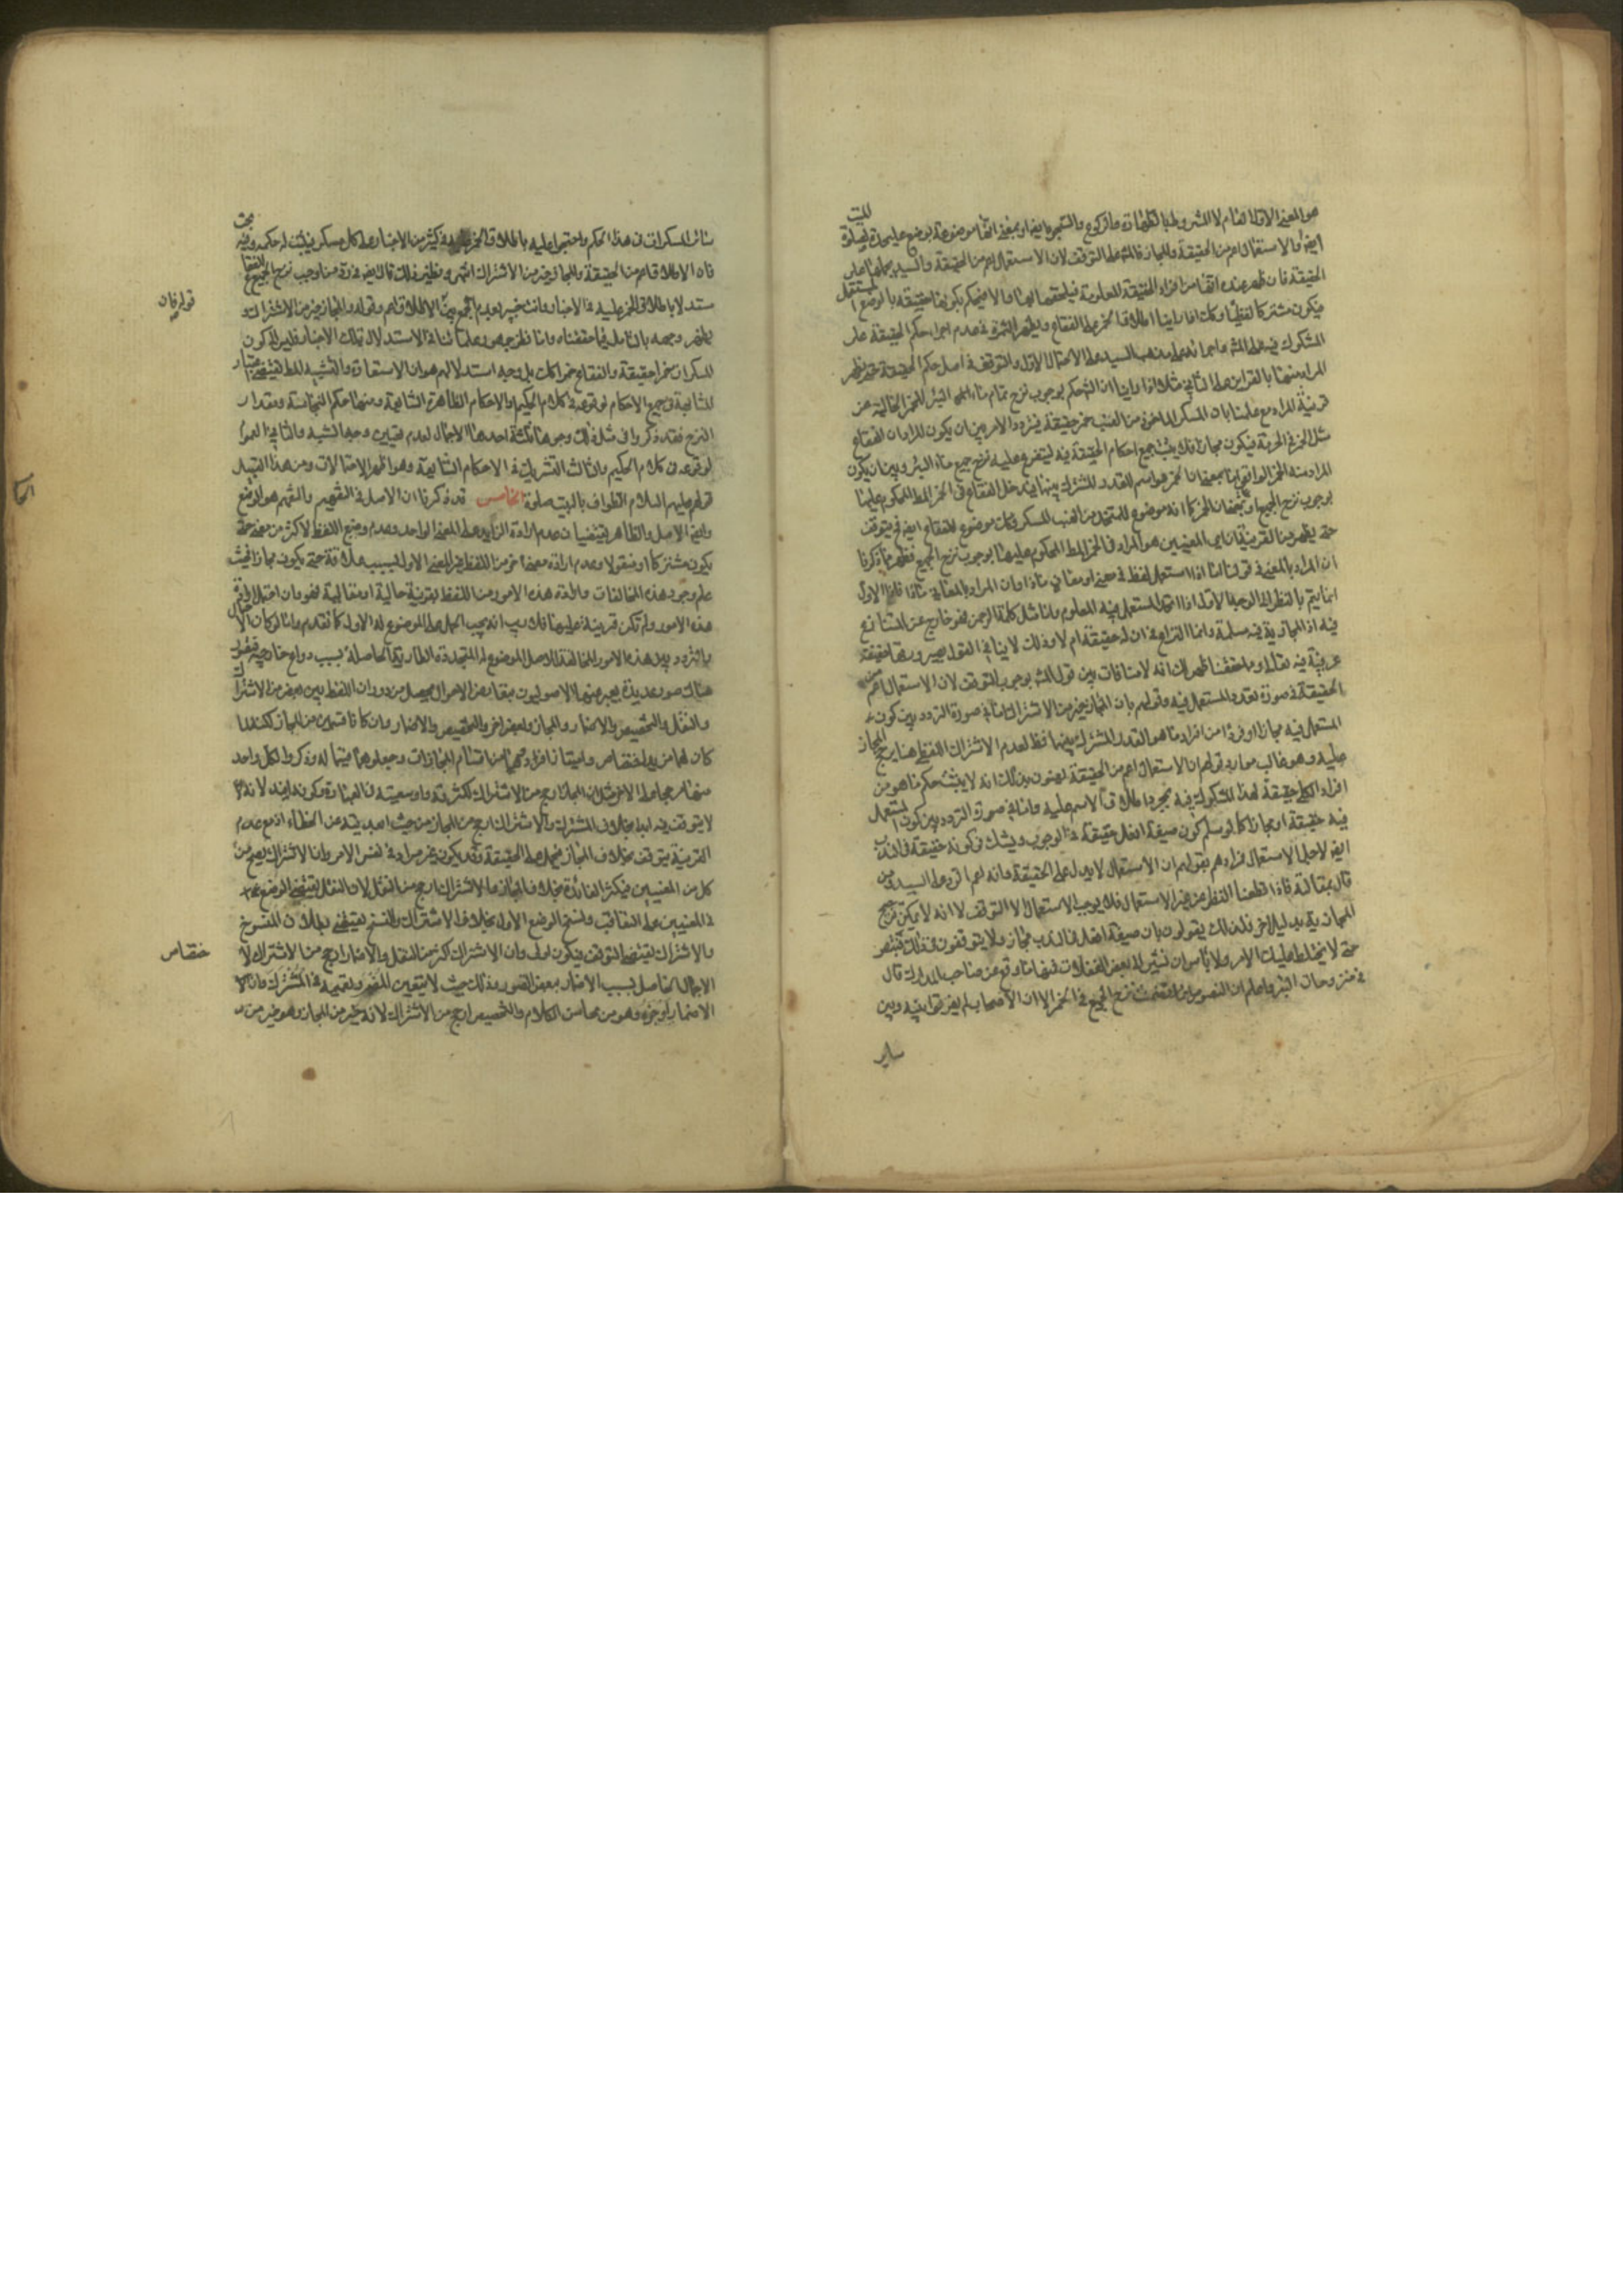 هو المعنى الاول لا العام لا المشروط بالطهارة والركوع والسجود ايضا او بمعنى انها موضوعة لوضع عليحدة لصلوة الميت
ايضا والاستعمال اعم من الحقيقة والمجاز فالمشهور على التوقف لان الاستعمال اعم من الحقيقة والسيد يحملها على
الحقيقة فان ظهر عنده انها من افراد الحقيقة المعلومة فيلحقها بها والا فيحكم بكونها حقيقة بالوضع المستقل
فيكون مشتركا لفظيا وكك اذا راينا اطلاق الخمر على الفقاع ويظهر الثمرة في عدم اجراء حكم الحقيقة على
المشكوك فيه على المشهور واجرائه على مذهب السيد على الاحتمال الاول والتوقف في اصل حكم الحقيقة حتى يظهر
المراد منها بالقراين على الثاني مثلا اذا راينا ان الشارع حكم بوجوب نزح تمام ماء البئر للخمر الخالية عن
قرينة المراد مع علمنا بان المسكر الماخوذ من العنب خمر حقيقة فيتردد الامر بين ان يكون المراد ان الفقاع
مثل الخمر في الحرمة فيكون مجازا فلا يثبت جميع احكام الحقيقة فيه ليتفرع عليه نزح جميع ماء البئر وبين ان يكون
المراد منه الخمر الواقعي اما بمعنى ان الخمر هو اسم للقدر المشترك بينهما فيدخل الفقاع في الخمر المطلق المحكوم عليها
بوجوب نزح الجميع او بمعنى ان الخمر كما انه موضوع للمتخذ من العنب المسكر فكك موضوع للفقاع ايضا فيتوقف
حتى يظهر من القرينة ان اي المعنيين هو المراد في الخمر المطلق المحكوم عليها بوجوب نزح الجميع فظهر بما ذكرنا
ان المراد بالمعنى في قولنا اذا استعمل لفظ في معنى او معاني ماذا وان المراد بالمعاني ماذا فان الاول
انما يتم بالنظر الى الوجه الاول اذا اتحد المستعمل فيه المعلوم واما مثل كلمة الرحمن فهو خارج عن المتنازع
فيه اذ المجازية فيه مسلمة وانما النزاع في ان له حقيقة ام لا وذلك لا ينافي القول بصيرورتها حقيقة
عرفية فيه تعالى ومما حققنا ظهر لك انه لا منافات بين قول المشهور بوجوب التوقف لان الاستعمال اعم من
الحقيقة في صورة تعدد المستعمل فيه وقولهم بان المجاز خير من الاشتراك اما في صورة التردد بين كون
المستعمل فيه مجازا او فردا من افراد ما هو القدر المشترك بينهما فظ لعدم الاشتراك اللفظي هنا يرجح المجاز
عليه وهو غالب موارد قولهم ان الاستعمال اعم من الحقيقة يعنون بذلك انه لا يثبت حكم ما هو من
افراد الكلي حقيقة لهذا المشكوك فيه بمجرد اطلاق الاسم عليه واما في صورة التردد بين كون المستعمل
فيه حقيقة او مجازا كما لو سلم كون صيغة افعل حقيقة في الوجوب ويشك في كونه حقيقة في الندب
ايضا لاجل الاستعمال فمرادهم بقولهم ان الاستعمال لا يدل على الحقيقة وانه اعم الرد على السيد ومن
قال بمقالته فاذا قطعنا النظر عن غير الاستعمال فلا يوجب الاستعمال الا التوقف لا انه لا يمكن ترجيح
المجاز بدليل اخر فلذلك يقولون بان صيغة افعل في الندب مجاز ولا يتوقفون في ذلك فتبصر
حتى لا يختلط عليك الامر ولا باس ان نشير الى بعض الغفلات فمنها ما وقع من صاحب المدارك قال
في منزوحات البئر واعلم ان النصوص انما تضمنت نزح الجميع في الخمر الا ان الاصحاب لم يفرقوا بينه وبين
ساير
سائر المسكرات في هذا الحكم واحتجوا عليه باطلاق الخمر في كثير من الاخبار على كل مسكر فيثبت له حكمه وفيه بحث
فان الاطلاق اعم من الحقيقة والمجاز خير من الاشتراك انتهى ونظير ذلك قال ايضا في رد من اوجب نزح الجميع للفقاع
مستدلا باطلاق الخمر عليه في الاخبار وانت خبير بعدم الجمع بين الاطلاق اعم وقوله والمجاز خير من الاشتراك و
يظهر وجهه بالتامل فيما حققناه واما نظر جمهور علمائنا في الاستدلال بتلك الاخبار فليس الى كون
المسكرات خمرا حقيقة والفقاع خمرا كك بل وجه استدلالهم هو ان الاستعارة والتشبيه المطلق يقتضي
المشابهة في جميع الاحكام لوقوعه في كلام الحكيم او الاحكام الظاهرة الشايعة ومنها حكم النجاسة ومقدار
النزح فقد ذكروا في مثل ذلك وجوها ثلثة احدها الاجمال لعدم تعيين وجه الشبه والثاني العموم
لوقوعه في كلام الحكيم والثالث التشريك في الاحكام الشايعة وهو اظهر الاحتمالات ومن هذا القبيل
قولهم عليهم السلام الطواف بالبيت صلوة الخامس قد ذكرنا ان الاصل في التفهيم والتفهم هو الوضع
وايضا الاصل والظاهر يقتضيان عدم ارادة الزايد على المعنى الواحد وعدم وضع اللفظ لاكثر من معنى حتى
يكون مشتركا او منقولا وعدم ارادة معنى اخر من اللفظ غير المعنى الاول بسبب علاقة حتى يكون مجازا فحيث
علم وجود هذه المخالفات وارادة هذه الامور من اللفظ بقرينة حالية او مقالية فهو وان احتمل ارادة
هذه الامور ولم تكن قرينة عليها فلا ريب انه يجب الحمل على الموضوع له الاول كما تقدم واما لو كان الاحتمال
والتردد بين هذه الامور المخالفة للاصل الموضوع له المتجددة الطارية الحاصلة بسبب دواع خارجية فيتصور
هناك صور عديدة يعبر عنها الاصوليون بتعارض الاحوال يحصل من دوران اللفظ بين بعض من الاشتراك
والنقل والتخصيص والاضمار والمجاز وبعض اخر والتخصيص والاضمار وان كانا قسمين من المجاز لكنه لما
كان لهما مزيد اختصاص وامتياز افردوهما من اقسام المجازات وجعلوهما قسيما له وذكروا لكل واحد
منها مرجحا على الاخر مثل ان المجاز ارجح من الاشتراك لكثرته واوسعيته في العبارة وكونه افيد لانه
لا يتوقف فيه ابدا بخلاف المشترك والاشتراك ارجح من المجاز من حيث ابعديته عن الخطاء اذ مع عدم
القرينة يتوقف بخلاف المجاز فيحمل على الحقيقة وقد يكون غير مراد في نفس الامر وان الاشتراك يصح من
كل من المعنيين فيكثر الفائدة بخلاف المجاز والاشتراك ارجح من النقل لان النقل يقتضي الوضع
في المعنيين على التعاقب ونسخ الوضع الاول بخلاف الاشتراك والنسخ يقتضي بطلان المنسوخ
والاشتراك يقتضي التوقف فيكون اولى وان الاشتراك اكثر من النقل والاضمار ارجح من الاشتراك لان
الاجمال الحاصل بسبب الاضمار ببعض الصور وذلك حيث لا يتعين المضمر وتعميمه في المشترك وان
الاضمار اوجز وهو من محاسن الكلام والتخصيص ارجح من الاشتراك لانه خير من المجاز وهو خير من
قوله فان